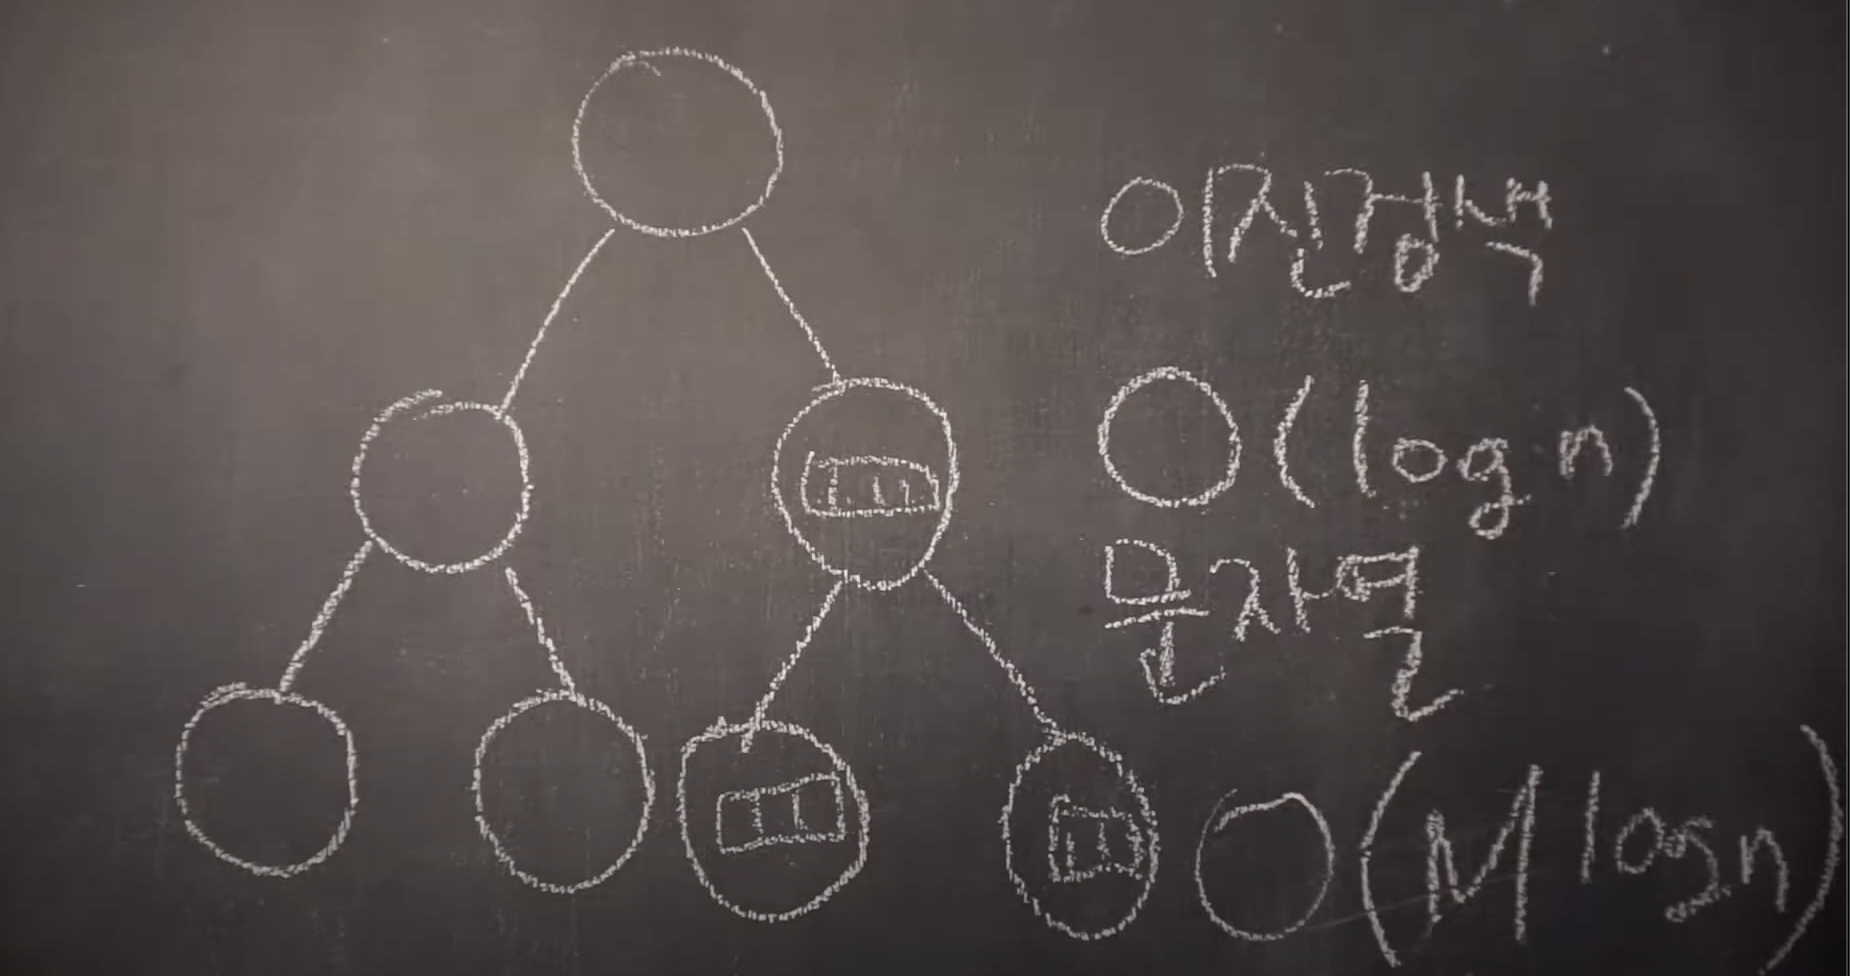 이진검색
O(log n)
문자열
O(M logn)